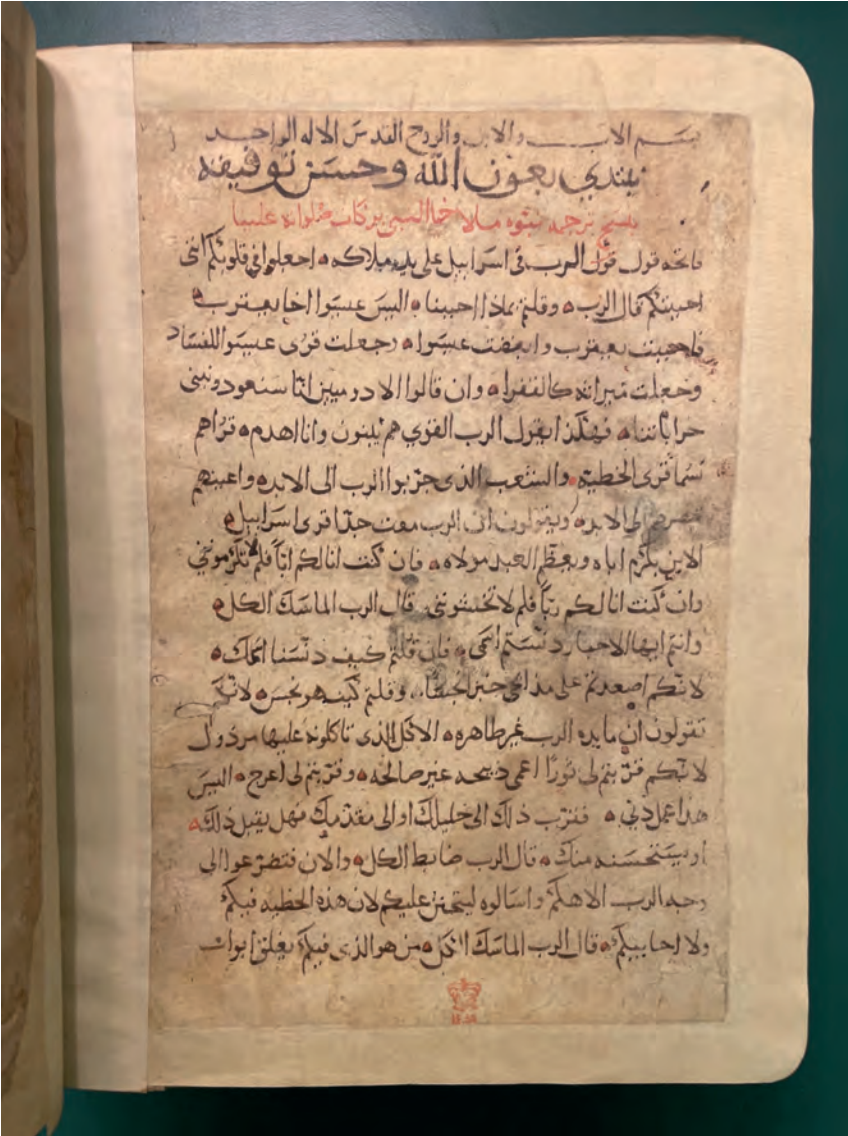 بسم الاب والابن والروح القدس الاله الواحد
نبتدي بعون الله وحسن توفيقه
بنسخ ترجمه نبوه ملاخيا النبي بركات صلواته علينا
فاتحه قول قول الرب في اسراييل على يد ملاكه اجعلوا في قلوبكم انني
احببتكم قال الرب وقلتم بماذا احببنا اليس عيسوا اخا يعقوب
فاحببت يعقوب وابغضت عيسوا وجعلت قرى عيسوا للفساد
وجعلت ميراثه كالقفرا وان قالوا الادوميين اننا سنعود ونبني
خراباتنا فهكذا يقول الرب القوي هم يبنون وانا اهدم قراهم
تسما قرى الخطية والشعب الذى جربوا الرب الى الابد واعينهم
الى الابد ويقولون ان الرب جدا قرى اسراييل
الابن يكرم اباه ويعظم العبد مولاه فان كنت انا لكم ابًا فلم لا تكرمونني
وان كنت انا لكم ربًا فلم لا تخشونني قال الرب الماسك الكل
وانتم ايها الاحبار دنستم اسمى فان قلتم كيف دنسنا اسمك
لانكم اصعدتم على مذابحى خبز وقلتم كيف هو نجس لانكم
تقولون ان مايده الرب غير طاهره الاكل الذى تاكلونه عليها مرذول
لانكم قربتم لى ثورًا اعمى ذبيحه غير صالحه وقربتم لى اعرج اليس
هذا فقرب ذلك الى خليلك او الى مقدمك فهل يقبل ذلك
او يستحسنه منك قال الرب ضابط الكل والان فتضرعوا الى
وجه الرب الاهكم واسالوه ليتحنن عليكم لان هذه الخطيه فيكم
ولا احابيكم قال الرب الماسك الكل من هو الذى فيكم يغلق ابواب